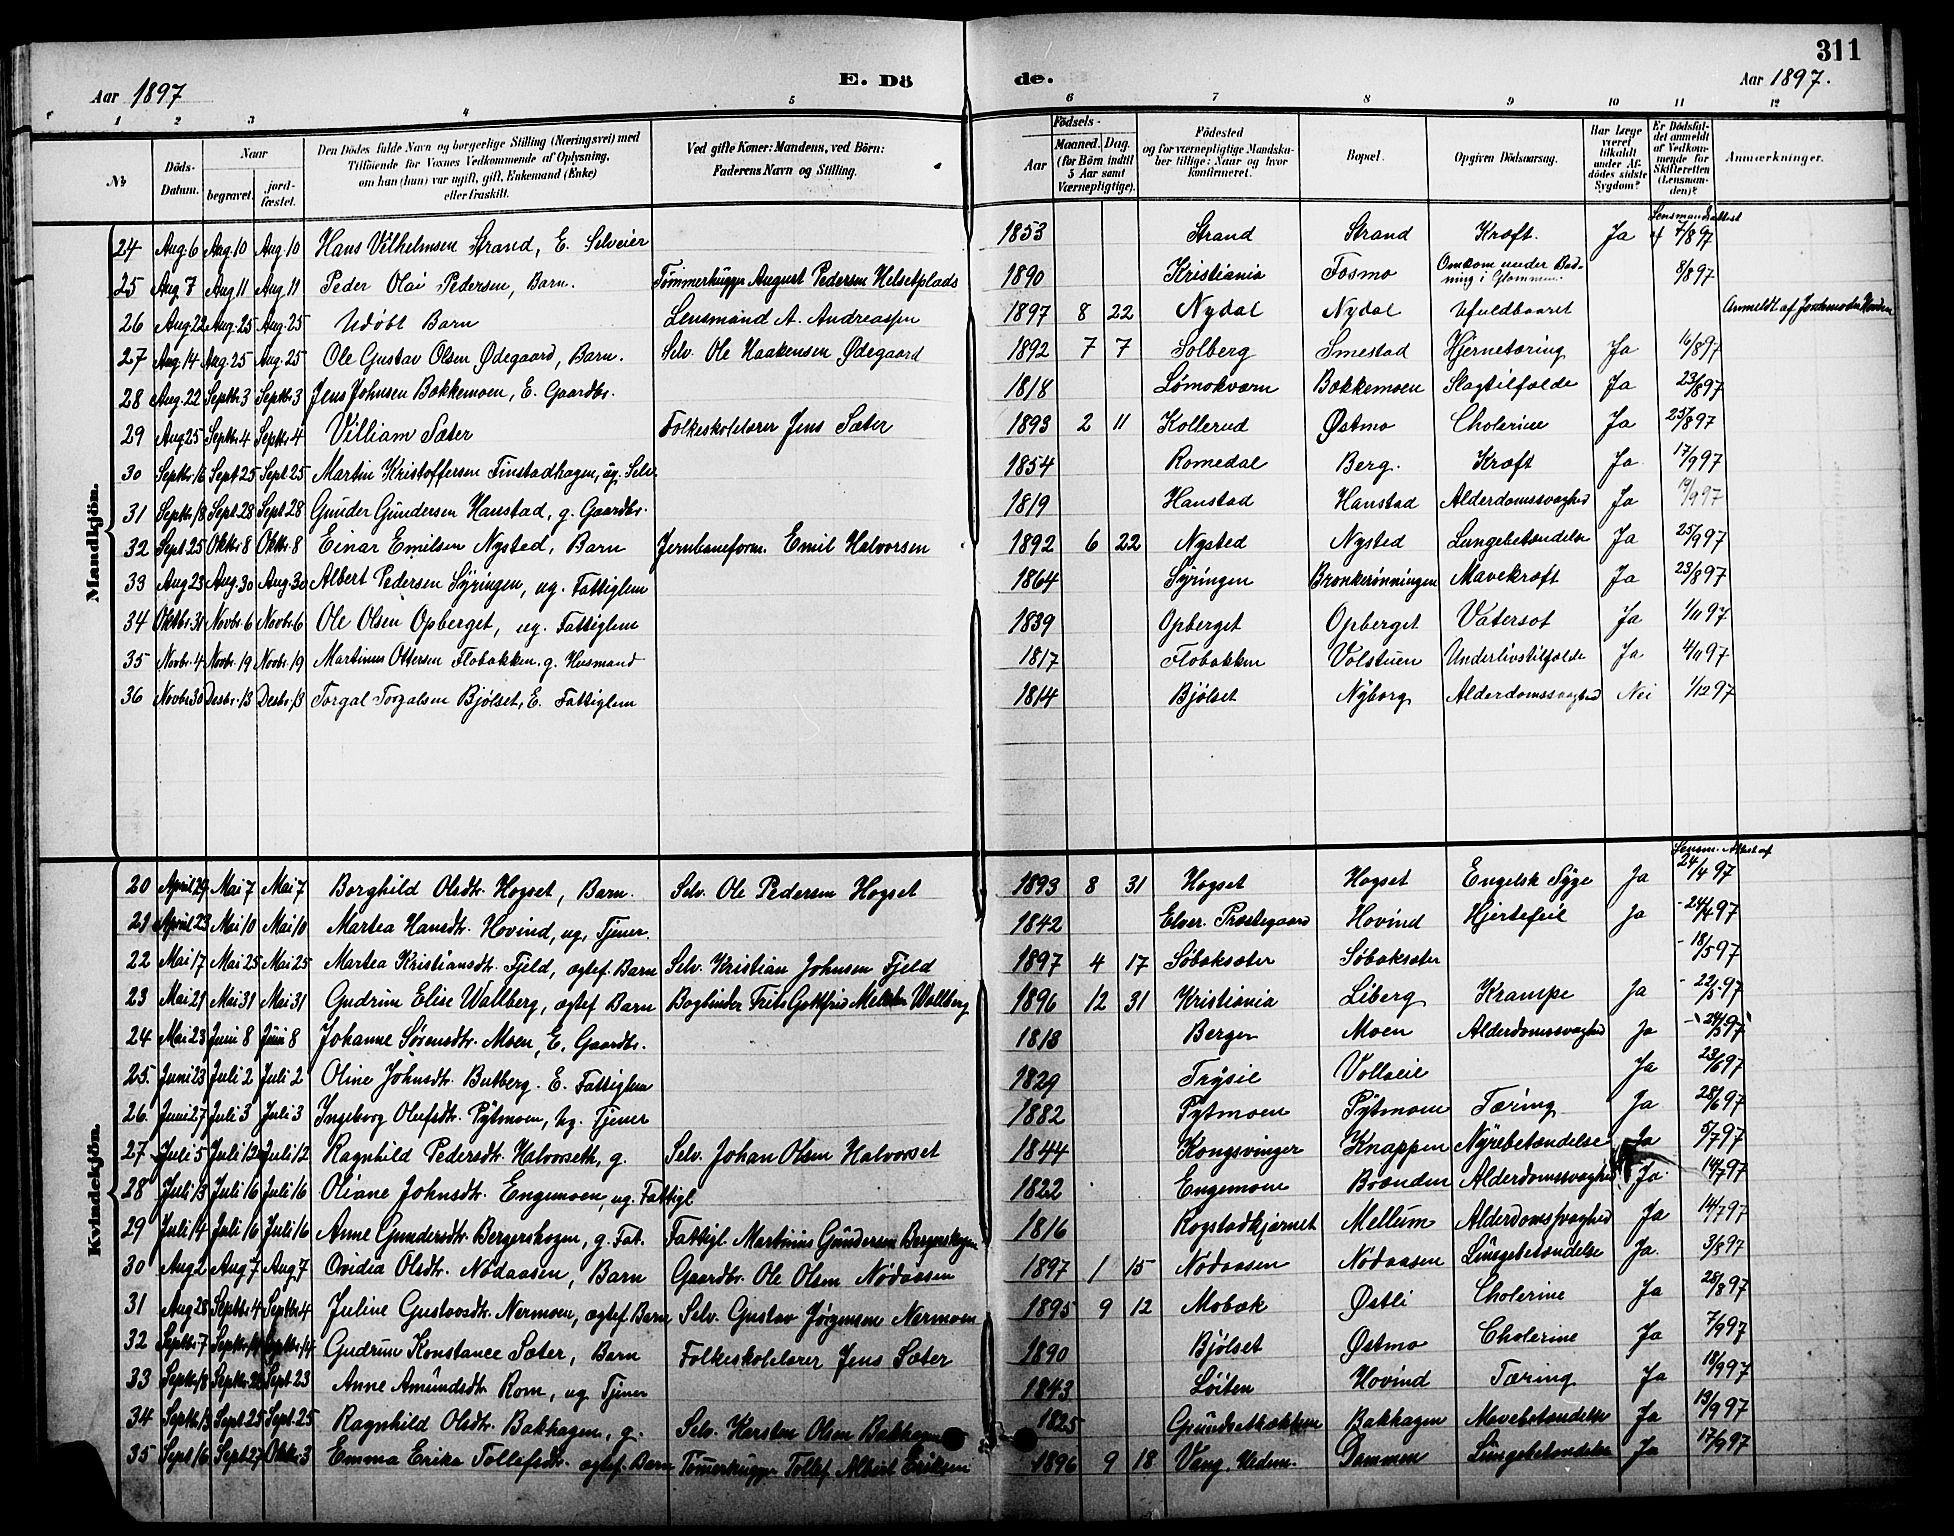 311
Aar 1897 E. Dö de. Aar 1897.
1 2 3 4 5 6 7 8 9 10 11 12
No Döds-Datum. Naar begravet jordfæstet. Den Dödes fulde Navn og borgerlige Stilling (Næringsvei) med Tilföiende for Voxnes Vedkommende af Oplysning, om han (hun) var ugift, gift, Enkemand (Enke) eller fraskilt. Ved gifte Koner: Mandens, ved Börn: Faderens Navn og Stilling. Födsels- Aar Maaned. Dag. (for Börn indtil 5 Aar samt Værnepligtige). Födested og for værnepligtige Mandskaber tillige: Naar og hvor konfirmeret. Bopæl. Opgiven Dödsaarsag. Har Læge været tilkaldt under Afdödes sidste Sygdom? Er Dödsfaldet anmeldt af Vedkommende for Skifteretten (Lensmanden)? Anmærkninger.
Mandkjön.
24 Aug. 6 Aug. 10 Aug. 10 Hans Vilhelmsen Strand, E. Selveier 1853 Strand Strand Kræft. Ja Lensmandsattest af 7/8 97
25 Aug. 7 Aug 11 Aug. 11 Peder Olai Pedersen, Barn. Tømmerhugger August Pedersen Helsetplads 1890 Kristiania Fosmo Omkom under Badning i Glommen 8/8 97
26 Aug. 22 Aug. 25 Aug. 25 Udøbt Barn Lensmand A. Andreassen 1897 8 22 Nydal Nydal Ufuldbaaret Anmeldt af Jordmoder
27 Aug. 14 Aug. 25 Aug. 25 Ole Gustav Olsen Ødegaard, Barn. Selv. Ole Haakensen Ødegaard 1892 7 7 Solberg Smestad Hjernetæring Ja 16/8 97
28 Aug. 22 Septbr. 3 Septbr. 3 Jens Johnsen Bakkemoen, E. Gaardbr. 1818 Lømokværn Bakkemoen Slagtilfælde Ja 23/8 97
29 Aug 25 Septbr. 4 Septbr. 4 Villiam Sæter Folkeskolelærer Jens Sæter 1893 2 11 Kollerud Østmo Cholerine Ja 25/8 97
30 Septbr. 16 Sept 25 Sept 25 Martin Kristoffersen Finstadhagen, ug. Selv. 1854 Romedal Berg. Kræft Ja. 17/9 97
31 Septbr. 18 Sept. 28 Sept 28 Gunder Gundersen Hanstad, g. Gaardbr. 1819 Hanstad Hanstad Alderdomssvaghed Ja 19/9 97
32 Sept. 25 Oktbr. 8 Oktbr. 8 Einar Emilsen Nysted, Barn Jernbaneform. Emil Halvorsen 1892 6 22 Nysted Nysted Lungebetændelse Ja 25/9 97
33 Aug. 23 Aug. 30 Aug. 30 Albert Pedersen Syringen, ug. Fattiglem 1864 Syringen Bronkerønningen Mavekræft Ja 23/8 97
34 Oktbr. 31 Novbr. 6 Novbr. 6 Ole Olsen Opberget, ug. Fattiglem 1839 Opberget Opberget Vatersot Ja 1/11 97
35 Novbr. 4 Novbr. 19 Novbr. 19 Martinus Ottersen Flobakken, g. Husmand 1817 Flobakken Volstuen Underlivstilfælde Ja 4/11 97
36 Novbr. 30 Desbr. 13 Desbr. 13 Torgal Torgalsen Bjølset, E. Fattiglem 1814 Bjølset Nyborg Alderdomssvaghed Nei 1/12 97
Kvindekjön.
20 April 24 Mai 7 Mai 7 Borghild Olsdtr. Hogset, Barn. Selv. Ole Pedersen Hogset 1893 8 31 Hogset Hogset Engelsk Syge Ja Lensm. Attest af 24/4 97
21 April 23 Mai 10 Mai 10 Martea Hansdtr. Hovind, ug. Tjener. 1842 Elver. Præstegaard Hovind Hjertefeil Ja - 24/4 97
22 Mai 17 Mai 25 Mai 25 Martea Kristiansdtr. Fjeld, ægtef. Barn Selv. Kristian Johnsen Fjeld 1897 4 17 Søbaksæter Søbaksæter - 18/5 97
23 Mai 21 Mai 31 Mai 31 Gudrun Elise Wallberg, ægtef Barn Bogbinder Frits Gottfrid Wallberg 1896 12 31 Kristiania Liberg Krampe Ja - 22/5 97
24 Mai 23 Juni 8 Juni 8 Johanne Sørensdtr. Moen, E. Gaardbr. 1813 Berger Moen Alderdomssvaghed Ja - 24/5 97
25. Juni 23 Juli 2 Juli 2 Oline Johnsdtr. Butberg. E. Fattiglem 1829 Trysil Volleie Ja 23/6 97
26. Juni 27 Juli 3 Juli 3 Ingeborg Olufsdtr. Pytmoen, ug. Tjener 1882 Pytmoen Pytmoen Tæring Ja 28/6 97
27 Juli 5 Juli 12 Juli 12 Ragnhild Pedersdtr. Halvorseth, g. Selv. Johan Olsen Halvorset 1844 Kongsvinger Knappen Nyrebetændelse Ja 5/7 97
28 Juli 13 Juli 16 Juli 16 Oliane Johnsdtr. Engemoen, ug. Fattigl 1822 Engemoen Brænden Alderdomssvaghed Ja. 14/7 97
29 Juli 14 Juli 16 Juli 16 Anne Gundersdtr. Bergershagen, g. Fat. Fattigl. Martinius Gundersen Bergershagen 1816 Rogstadkjærnet Mellum Alderdomssvaghed Ja 14/7 97
30 Aug 2 Aug. 7 Aug. 7 Ovidia Olsdtr. Nødaasen, Barn Gaardbr. Ole Olsen Nødaasen 1897 1 15 Nødaasen Nødaasen Lungebetændelse Ja. 3/8 97
31 Aug 28 Septbr. 4 Septbr. 4 Juline Gustavsdtr. Nermoen, ægtef. Barn Selv. Gustav Jørgensen Nermoen 1895 9 12 Mobæk Østli Cholerine Ja 28/8 97
32 Septbr. 7 Septbr. 14 Septbr. 14 Gudrun Konstance Sæter, Barn Folkeskolelærer Jens Sæter 1890 Bjølset Østmo Cholerine Ja 7/9 97
33 Septbr. 18 Septbr. 23 Sept. 23 Anne Amundsdtr. Rom, ug. Tjener 1843 Løiten Hovind Tæring Ja 18/9 97
34 Septbr. 13 Sept. 25 Sept. 25 Ragnhild Olsdtr. Bakhagen, g. Selv. Karsten Olsen Bakhagen 1825 Grundsetbakken Bakhagen Mavebetændelse Ja 13/9 97
35 Sept 16 Sept 27 Oktbr 3 Emma Erika Tollefsdtr. ægtef. Barn Tømmerhugger Tollef Albert Eriksen 1896 9 18 Vang. Hedem. Dammen Lungebetændelse Ja 17/9 97